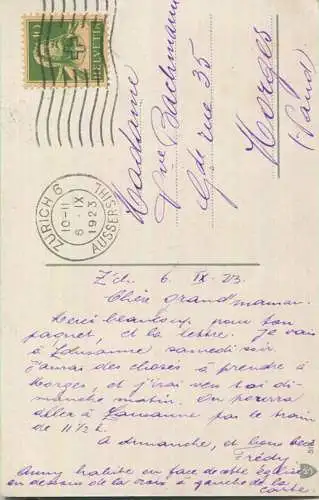 10
HELVETIA
ZÜRICH 6
10-11
6·IX
1923
AUSSERSIHL
Madame
Vve Bachmann
Gde rue 35
Morges
(Vaud)
Z'ch. 6. IX-23.
Chère grand'maman.
Merci beaucoup pour ton
paquet, et la lettre. Je vais
à Lausanne samedi soir.
J'aurai des choses à prendre à
Morges, et j'irai vers toi di-
manche matin. On pourra
aller à Lausanne par le train
de 11½ h.
A dimanche, et bons becs
Frédy
Anny habite en face de cette Eglise
en dessous de la croix à gauche de la
carte.